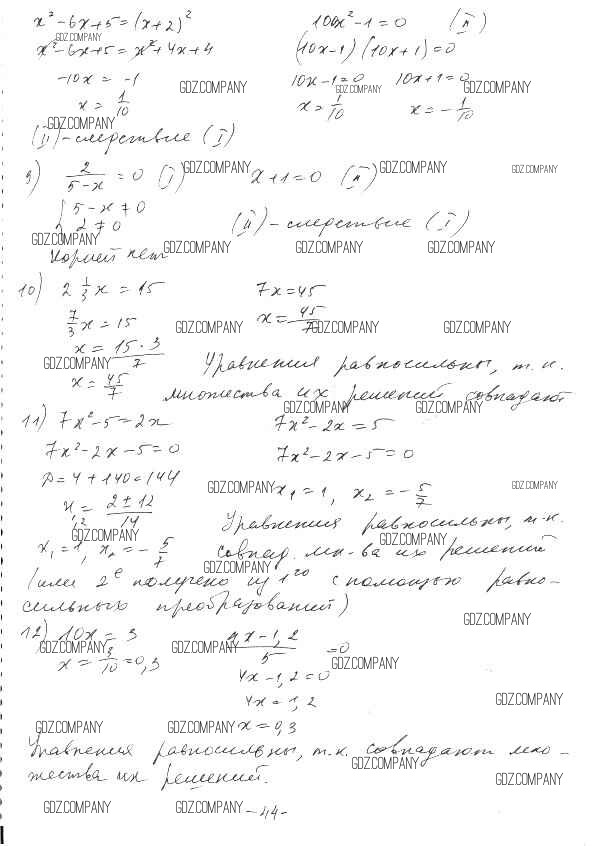 x² - 6x + 5 = (x + 2)²
100x² - 1 = 0 (II)
x² - 6x + 5 = x² + 4x + 4
(10x - 1)(10x + 1) = 0
-10x = -1
10x - 1 = 0 10x + 1 = 0
x = 1/10
x = 1/10 x = -1/10
(II) - следствие (I)
9) 2/(5 - x) = 0 (I) x + 1 = 0 (II)
{ 5 - x ≠ 0
2 ≠ 0
(II) - следствие (I)
Корней нет
10) 2 1/3 x = 15 7x = 45
7/3 x = 15 x = 45/7
x = 15·3/7
x = 45/7
Уравнения равносильны, т.к.
множества их решений совпадают
11) 7x² - 5 = 2x 7x² - 2x = 5
7x² - 2x - 5 = 0 7x² - 2x - 5 = 0
D = 4 + 140 = 144
x₁ = 1, x₂ = -5/7
x₁,₂ = (2 ± 12)/14
Уравнения равносильны, т.к.
x₁ = 1, x₂ = -5/7 совпад. мн-ва их решений
(или 2е получено из 1го с помощью равно-
сильных преобразований)
12) 10x = 3 (4x - 1,2)/5 = 0
x = 3/10 = 0,3
4x - 1,2 = 0
4x = 1,2
x = 0,3
Уравнения равносильны, т.к. совпадают мно-
жества их решений.
- 44 -
GDZ.COMPANY